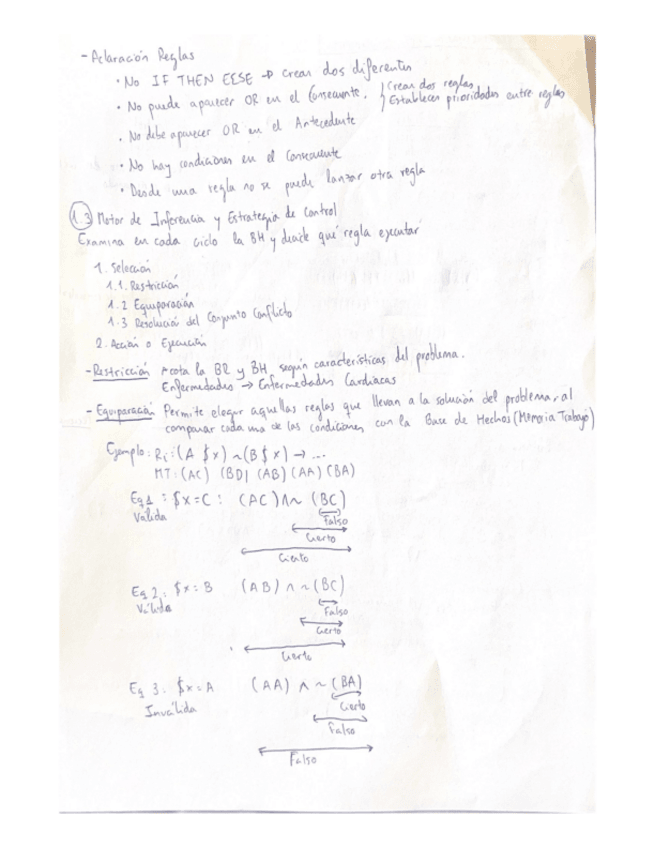 - Aclaración Reglas
• No IF THEN ELSE → crear dos diferentes
• No puede aparecer OR en el Consecuente. } Crear dos reglas
Establecer prioridades entre reglas
• No debe aparecer OR en el Antecedente
• No hay condiciones en el Consecuente
• Desde una regla no se puede lanzar otra regla
1.3 Motor de Inferencia y Estrategia de Control
Examina en cada ciclo la BH y decide qué regla ejecutar
1. Selección
1.1. Restricción
1.2 Equiparación
1.3 Resolución del Conjunto Conflicto
2. Acción o Ejecución
- Restricción Acota la BR y BH según características del problema.
Enfermedades → Enfermedades Cardiacas
- Equiparación Permite elegir aquellas reglas que llevan a la solución del problema, al
comparar cada una de las condiciones con la Base de Hechos (Memoria Trabajo)
Ejemplo: Ri: (A $x) ~ (B $x) → ...
MT: (AC) (BD) (AB) (AA) (BA)
Eq 1 : $x=C : (AC) ∧ ~ (BC)
Válida
Falso
Cierto
Cierto
Eq 2: $x=B (AB) ∧ ~ (BC)
Válida
Falso
Cierto
Cierto
Eq 3: $x=A (AA) ∧ ~ (BA)
Inválida
Cierto
Falso
Falso